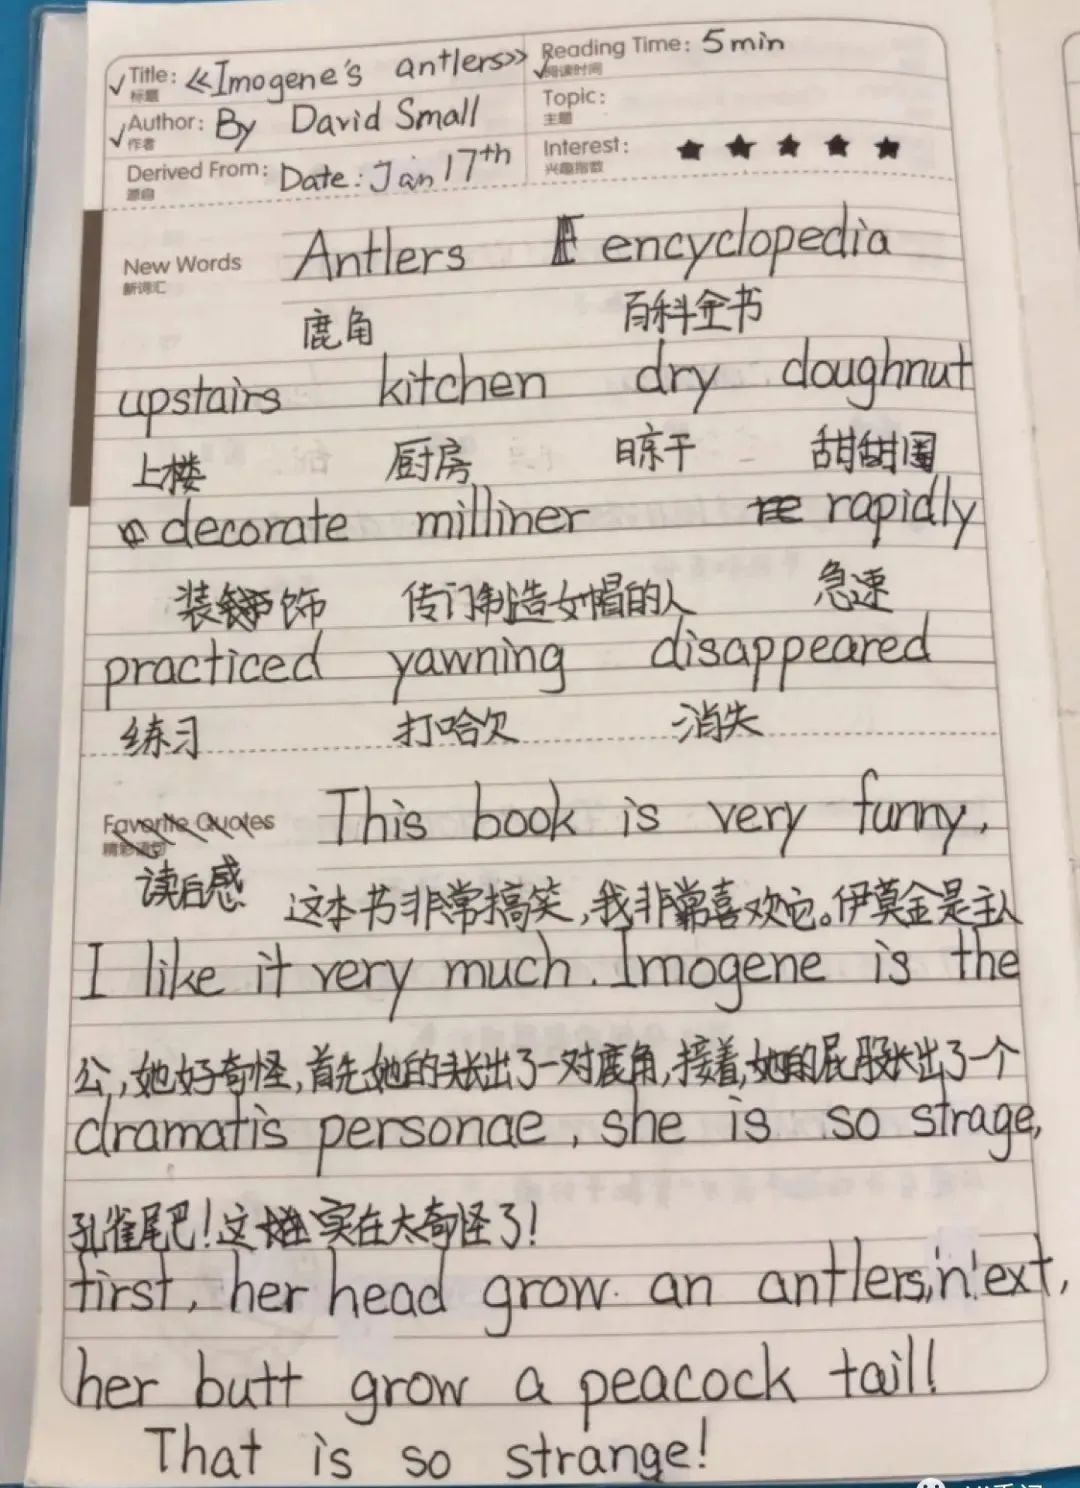 Title: 《Imogene's antlers》 Reading Time: 5min
标题 阅读时间
Author: By David Small Topic:
作者 主题
Derived From: Date: Jan 17th Interest: ★ ★ ★ ★ ★
源自 兴趣指数
New Words Antlers encyclopedia
新词汇
鹿角 百科全书
upstairs kitchen dry doughnut
上楼 厨房 晾干 甜甜圈
decorate milliner rapidly
装饰 传门制造女帽的人 急速
practiced yawning disappeared
练习 打哈欠 消失
Favorite Quotes This book is very funny,
精彩语句
读后感 这本书非常搞笑,我非常喜欢它。伊莫金是主人
I like it very much. Imogene is the
公,她好奇怪,首先她的头长出了一对鹿角,接着,她的屁股长出了一个
dramatis personae, she is so strage,
孔雀尾巴!这实在太奇怪了!
first, her head grow an antlers, next,
her butt grow a peacock tail!
That is so strange!